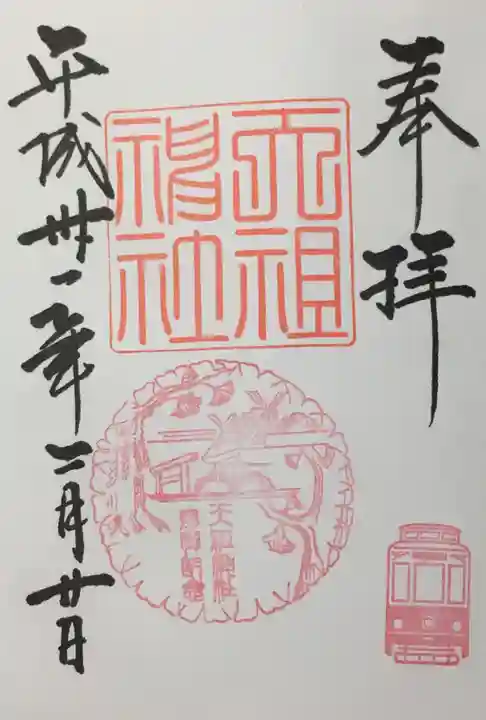 奉拝
天祖神社
天祖神社
平成卅一年二月廿日